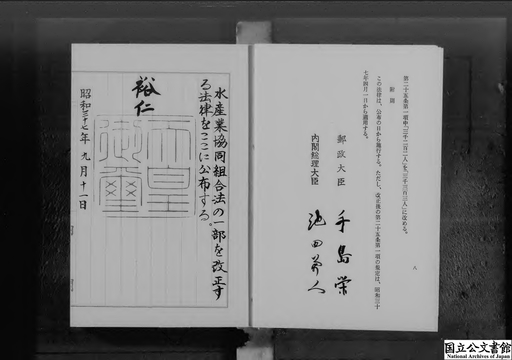 第二十五条第一項中「三千二百一人」を「三千三百三人」に改める。
附則
この法律は、公布の日から施行する。ただし、改正後の第二十五条第一項の規定は、昭和三十
七年四月一日から適用する。
郵政大臣 手島栄
内閣総理大臣 池田勇人
八
水産業協同組合法の一部を改正す
る法律をここに公布する。
裕仁
天皇御璽
昭和三十七年九月十一日
国立公文書館
National Archives of Japan